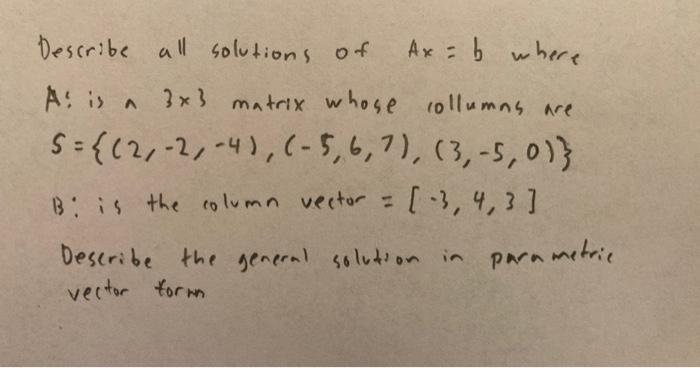 Describe all solutions of Ax = b where
A: is a 3x3 matrix whose collumns are
S = {(2, -2, -4), (-5, 6, 7), (3, -5, 0)}
B: is the column vector = [-3, 4, 3]
Describe the general solution in parametric
vector form